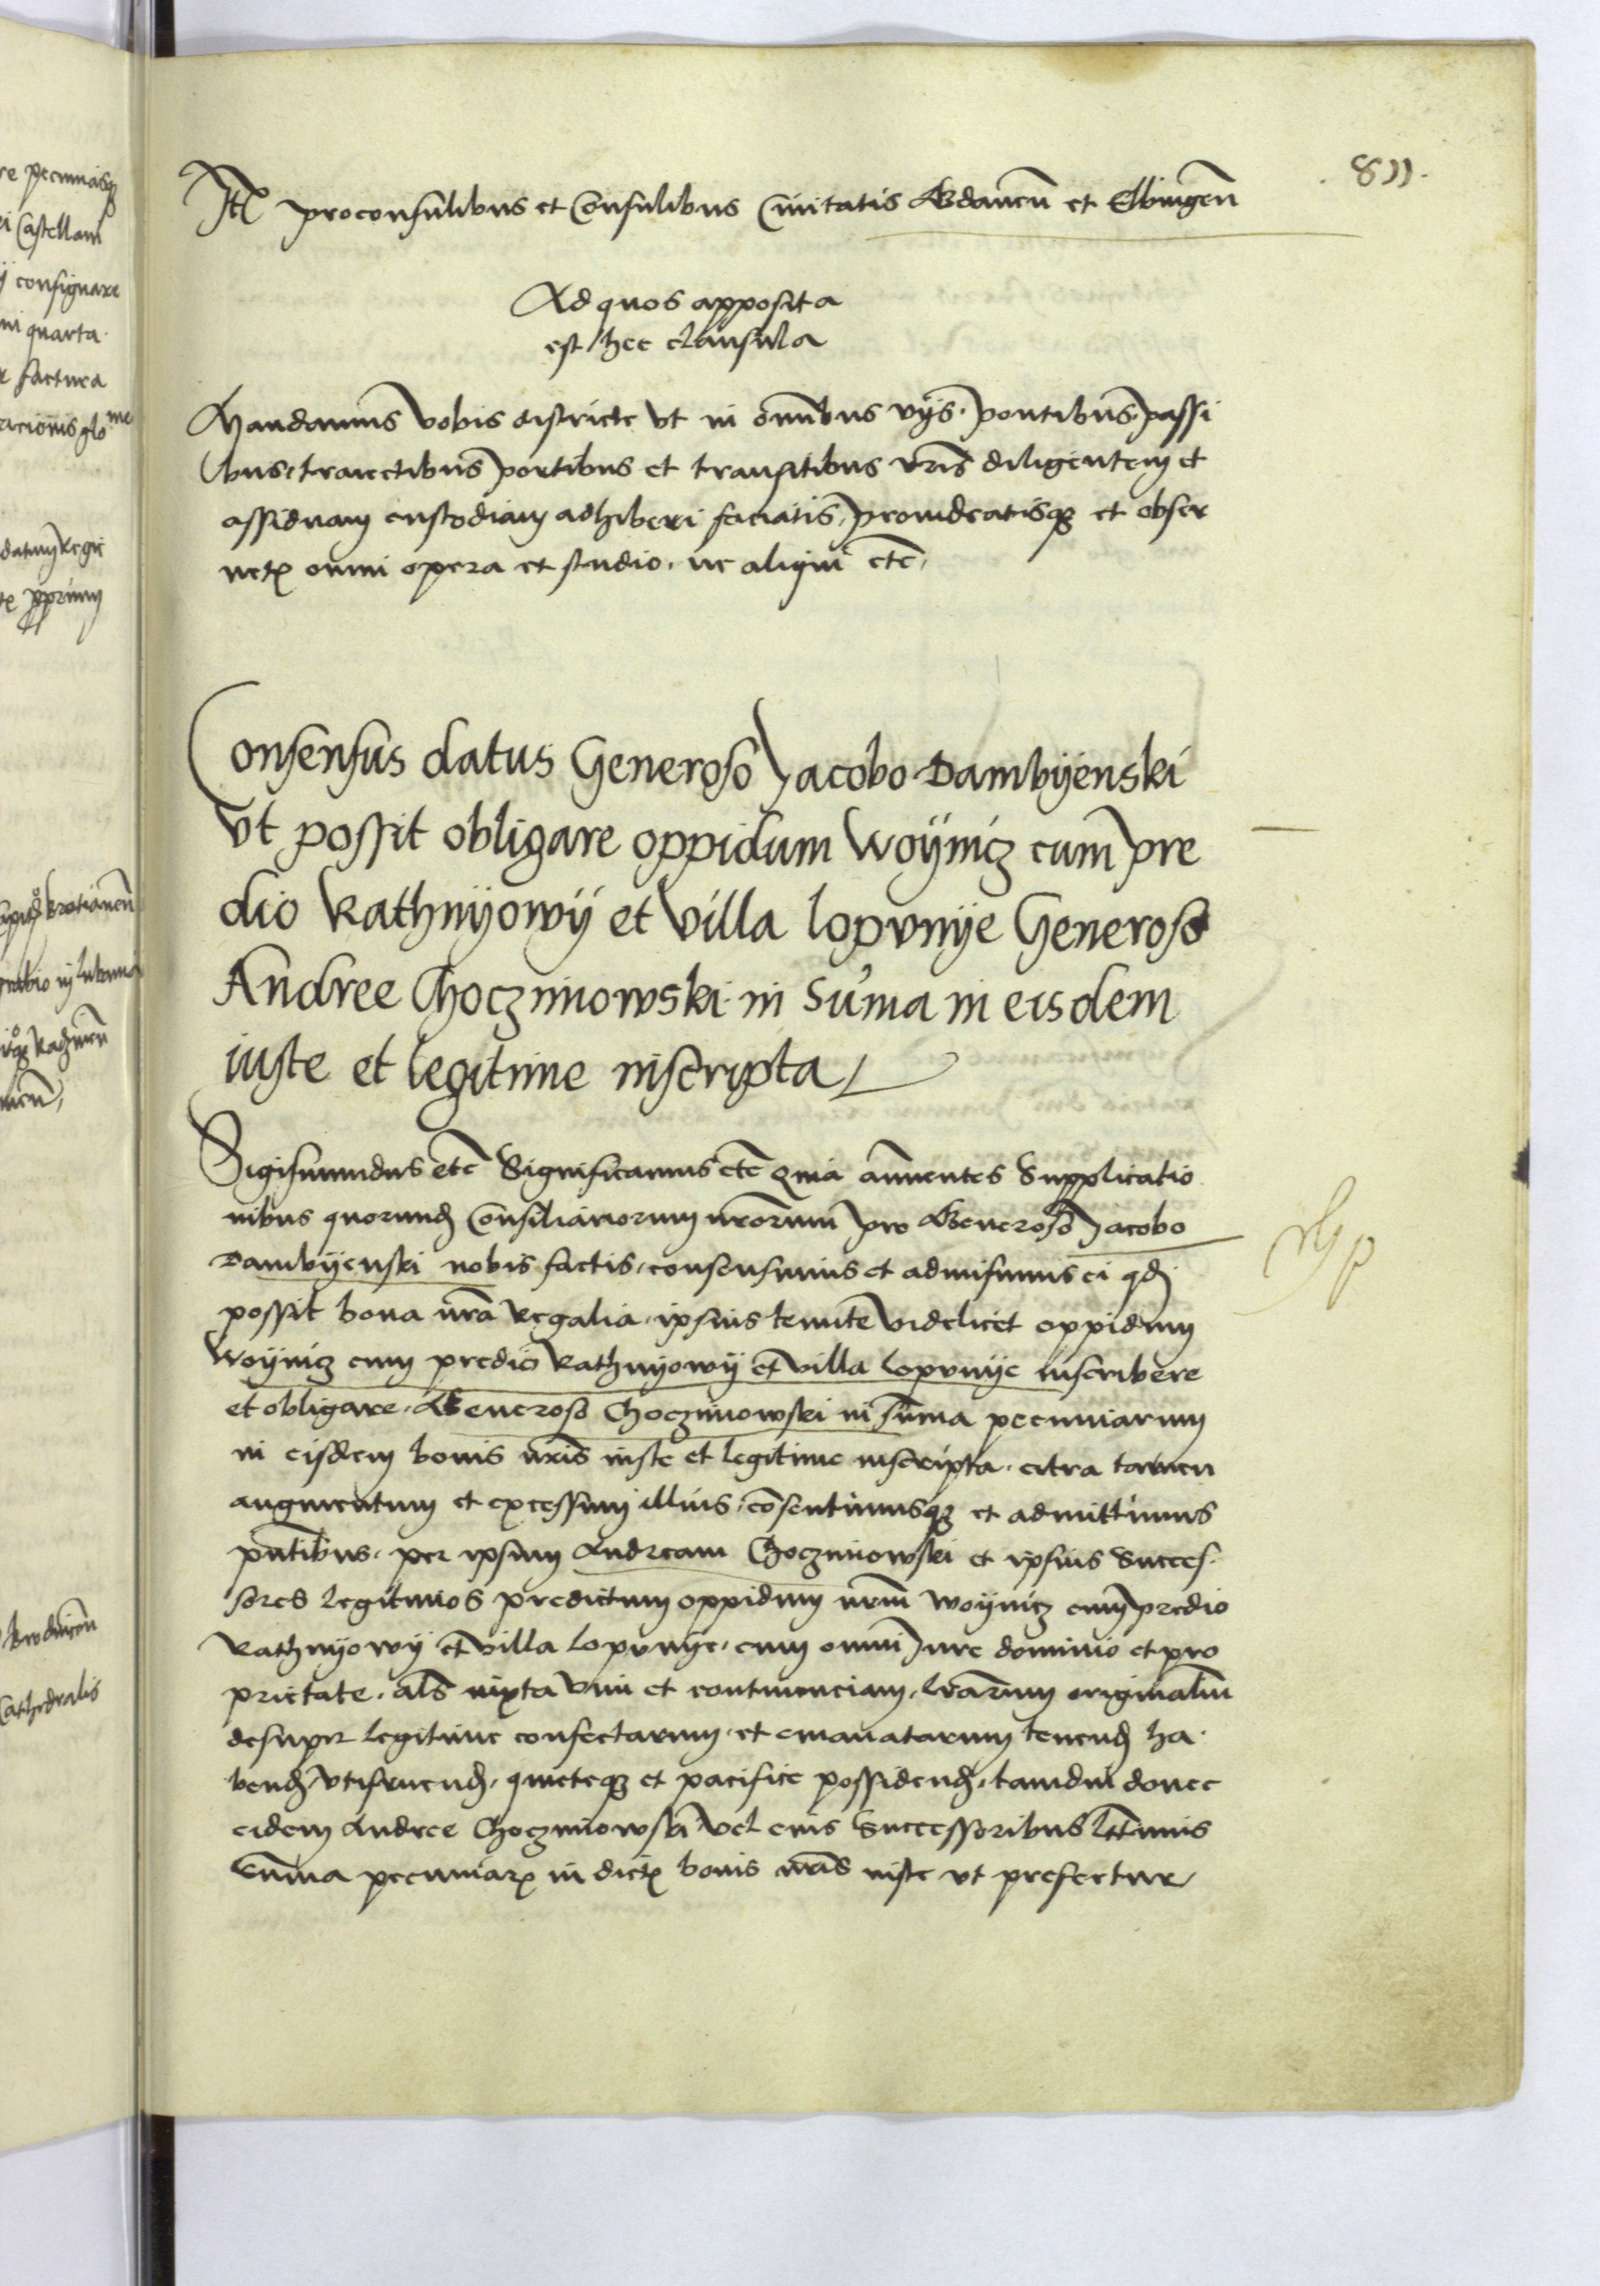 .811.
Itꝫ proconsulibus et Consulibus Civitatis Gdanen̄ et Elbingen̄
Ad quos apposita
est hec clausula
Mandamus vobis districte vt in om̄ibus vijs, pontibus, passi
bus, traiectibus, portibus et transitibus vr̄is diligentem et
assiduam custodiam adhiberi faciatis, prouideatisqꝫ et obser
uetꝭ omni opera et studio, ne aliqui etc̄,
Consensus datus Generoso Jacobo Dambyenski
vt possit obligare oppidum Woynicz cum pre
dio Rathnyowy et villa lopvnye Generoso
Andree Choczimowski in Sum̄a in eisdem
iuste et legitime inscripta
Sigismundus etc̄ Significamus etc̄ Quia annuentes Supplicatio
nibus quorundꝫ Consiliariorum nr̄orum pro Generoso Jacobo
Dambyenski nobis factis, consensimus et admisimus ei qd̄
possit bona nr̄a Regalia, ipsius tenute videlicet oppidum
Woynicz cum predio Rathnyowy et villa lopvnye inscribere
et obligare, Generoso Choczimowski in sum̄a pecuniarum
in eisdem bonis nr̄is iuste et legitime inscripta, citra tamen
augmentum et excessum illius, cōsentimusqꝫ et admittimus
pn̄tibus, per ipsum Andream Choczimowski et ipsius Succes
sores legitimos predictum oppidum nr̄m Woynicz cum predio
Rathnyowy et villa lopvnye, cum omni iure dominio et pro
prietate, als̄ iuxta vim et continenciam, lr̄arum originalium
desuper legitime confectarum, et emanatarum tenendꝫ ha
bendꝫ vtifruendꝫ, quieteqꝫ et pacifice possidendꝫ, tamdiu donec
eidem Andree Choczimowski vel eius Successoribus lt̄timis
sum̄a pecuniarꝫ in dictꝭ bonis nr̄is iuste vt prefertur